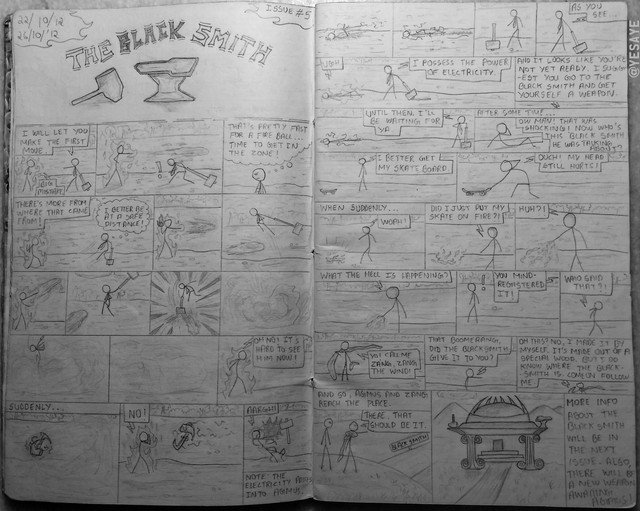 22/10/12
26/10/12
ISSUE #5
THE BLACK SMITH
I WILL LET YOU
MAKE THE FIRST
MOVE.
BIG
MISTAKE.
!
THAT'S PRETTY FAST
FOR A FIRE BALL...
TIME TO GET IN
THE ZONE!
THERE'S MORE FROM
WHERE THAT CAME
FROM!
I BETTER BE
AT A SAFE
DISTANCE!
OH NO! IT'S
HARD TO SEE
HIM NOW!
SUDDENLY...
NO!
AARGH!
NOTE: THE
ELECTRICITY
INTO AGIMUS.
AS YOU
SEE...
UGH!
I POSSESS THE POWER
OF ELECTRICITY.
AND IT LOOKS LIKE YOU'RE
NOT YET READY. I SUGG-
EST YOU GO TO THE
BLACK SMITH AND GET
YOURSELF A WEAPON.
UNTIL THEN, I'LL
BE WAITING FOR
YA.
AFTER SOME TIME...
OH MAN! THAT WAS
SHOCKING! NOW WHO'S
THIS BLACK SMITH
HE WAS TALKING
ABOUT?
I BETTER GET
MY SKATE BOARD.
OUCH! MY HEAD
STILL HURTS!
WHEN SUDDENLY...
WOAH!
DID I JUST PUT MY
SKATE ON FIRE?!
HUH?!
WHAT THE HELL IS HAPPENING?
!
YOU MIND-
REGISTERED
IT!
WHO SAID
THAT?!
YO! CALL ME
ZANG, ZANG
THE WIND!
THAT BOOMERANG,
DID THE BLACKSMITH
GIVE IT TO YOU?
OH THIS? NO, I MADE IT BY
MYSELF. IT'S MADE OUT OF A
SPECIAL WOOD. BUT I DO
KNOW WHERE THE BLACK-
SMITH IS. COME ON FOLLOW
ME.
AND SO, AGIMUS AND ZANG
REACH THE PLACE.
THERE, THAT
SHOULD BE IT.
BLACK SMITH
MORE INFO
ABOUT THE
BLACK SMITH
WILL BE IN
THE NEXT
ISSUE. ALSO,
THERE WILL BE
A NEW WEAPON
AWAITING
AGIMUS!
@YESAYE